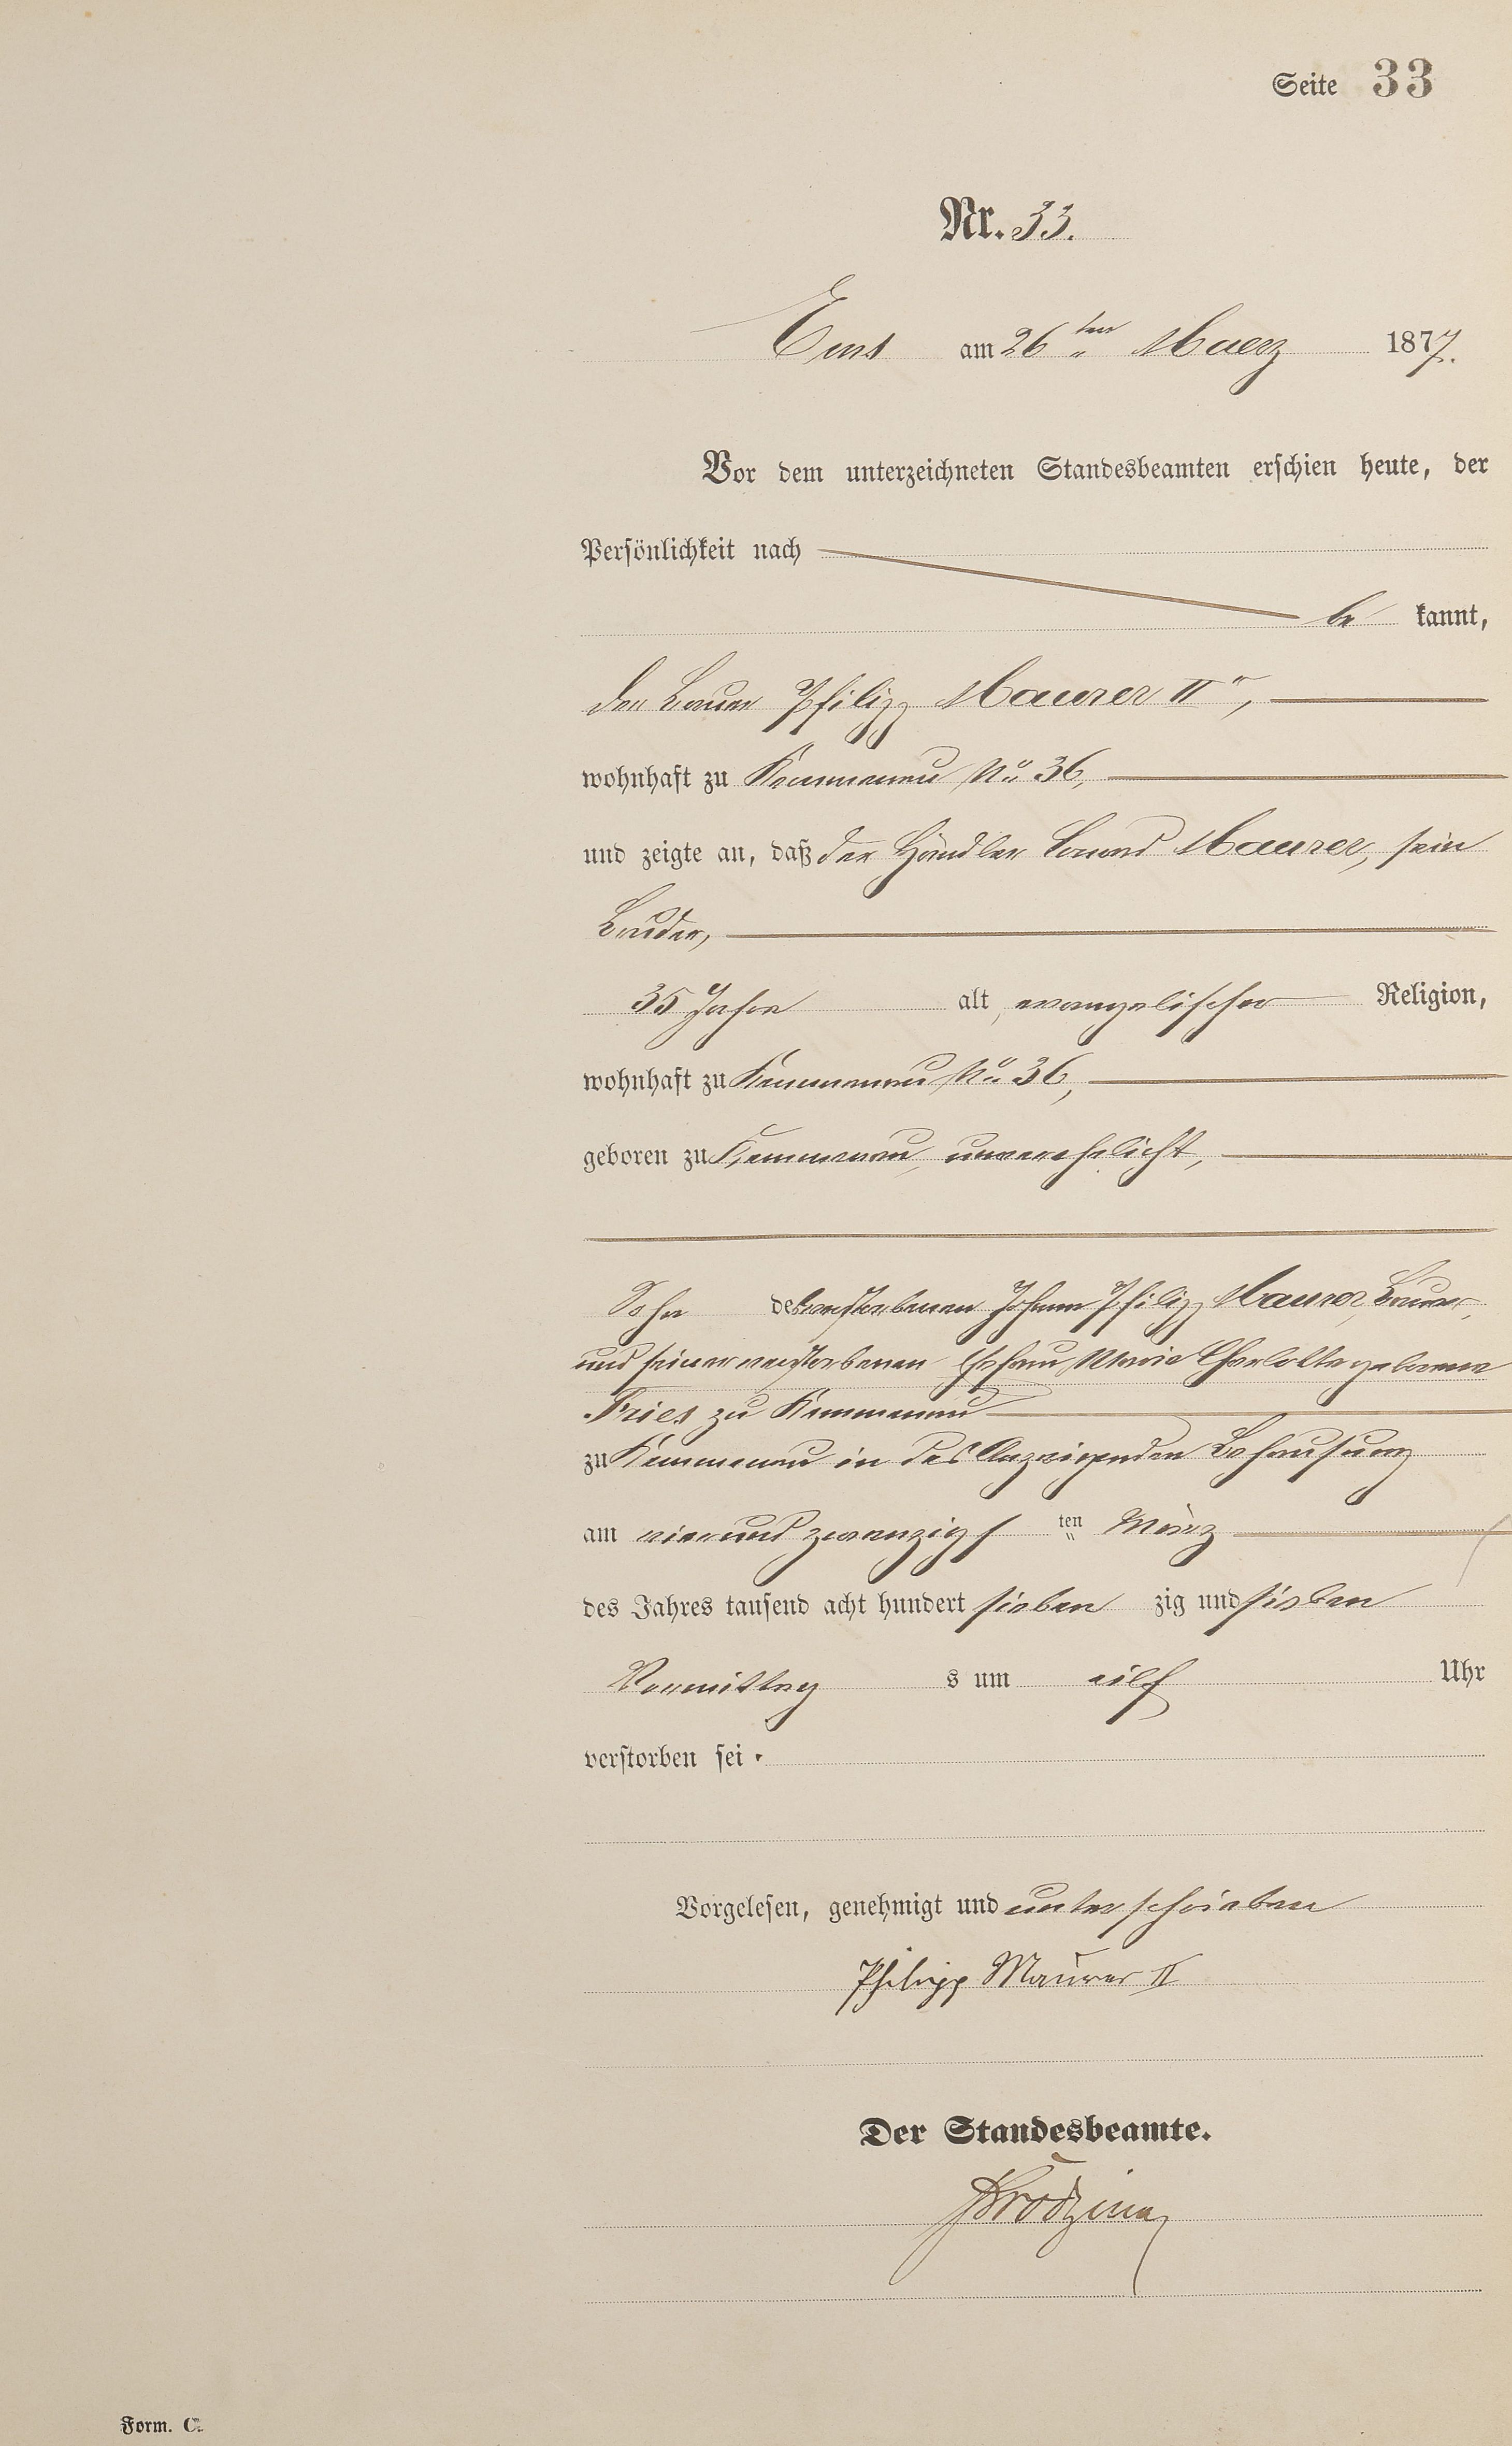 Seite 33
Nr. 33.
Ems am 26ten Maerz 1877.
Vor dem unterzeichneten Standesbeamten erschien heute, der
Persönlichkeit nach
be kannt,
der Bauer Philipp Maurer IIr,
wohnhaft zu Kemmenau No. 36,
und zeigte an, daß der Händler Maurer, sein
Bruder,
35 Jahre alt, evangelischer Religion,
wohnhaft zu Kemmenau No. 36,
geboren zu Kemmenau, unverehelicht,
Sohn des verstorbenen Johann Philipp Maurer, Bauer,
und seiner verstorbenen Ehefrau Marie Charlotte geborene
Fries zu Kemmenau
zu Kemmenau in des Anzeigenden Behausung
am vierundzwanzigsten März
des Jahres tausend acht hundert sieben zig und sieben
Vormittag s um eilf Uhr
verstorben sei.
Vorgelesen, genehmigt und unterschrieben
Philipp Maurer II
Der Standesbeamte.
Form. C.